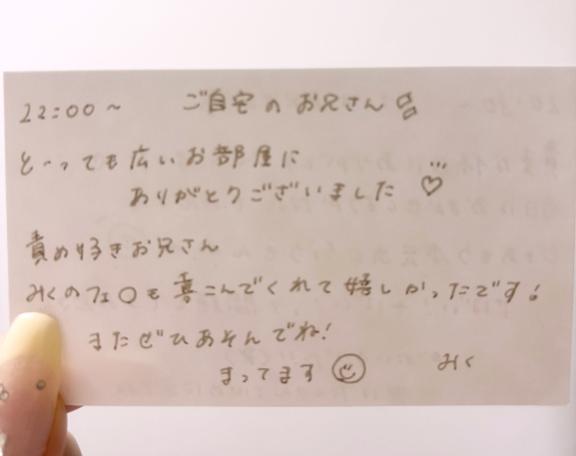 22:00～ ご自宅のお兄さん
とっても広いお部屋に
ありがとうございました ♡
責め好きお兄さん
みくのフェ〇も喜こんでくれて嬉しかったです!
またぜひあそんでね!
まってます みく